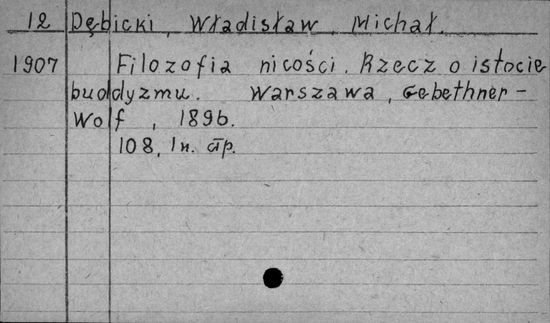 12 Dębicki, Władisław Michał.
1907 Filozofia nicości. Rzecz o istocie
buddyzmu. Warszawa, Gebethner-
Wolf, 1896.
108, 1 н. стр.